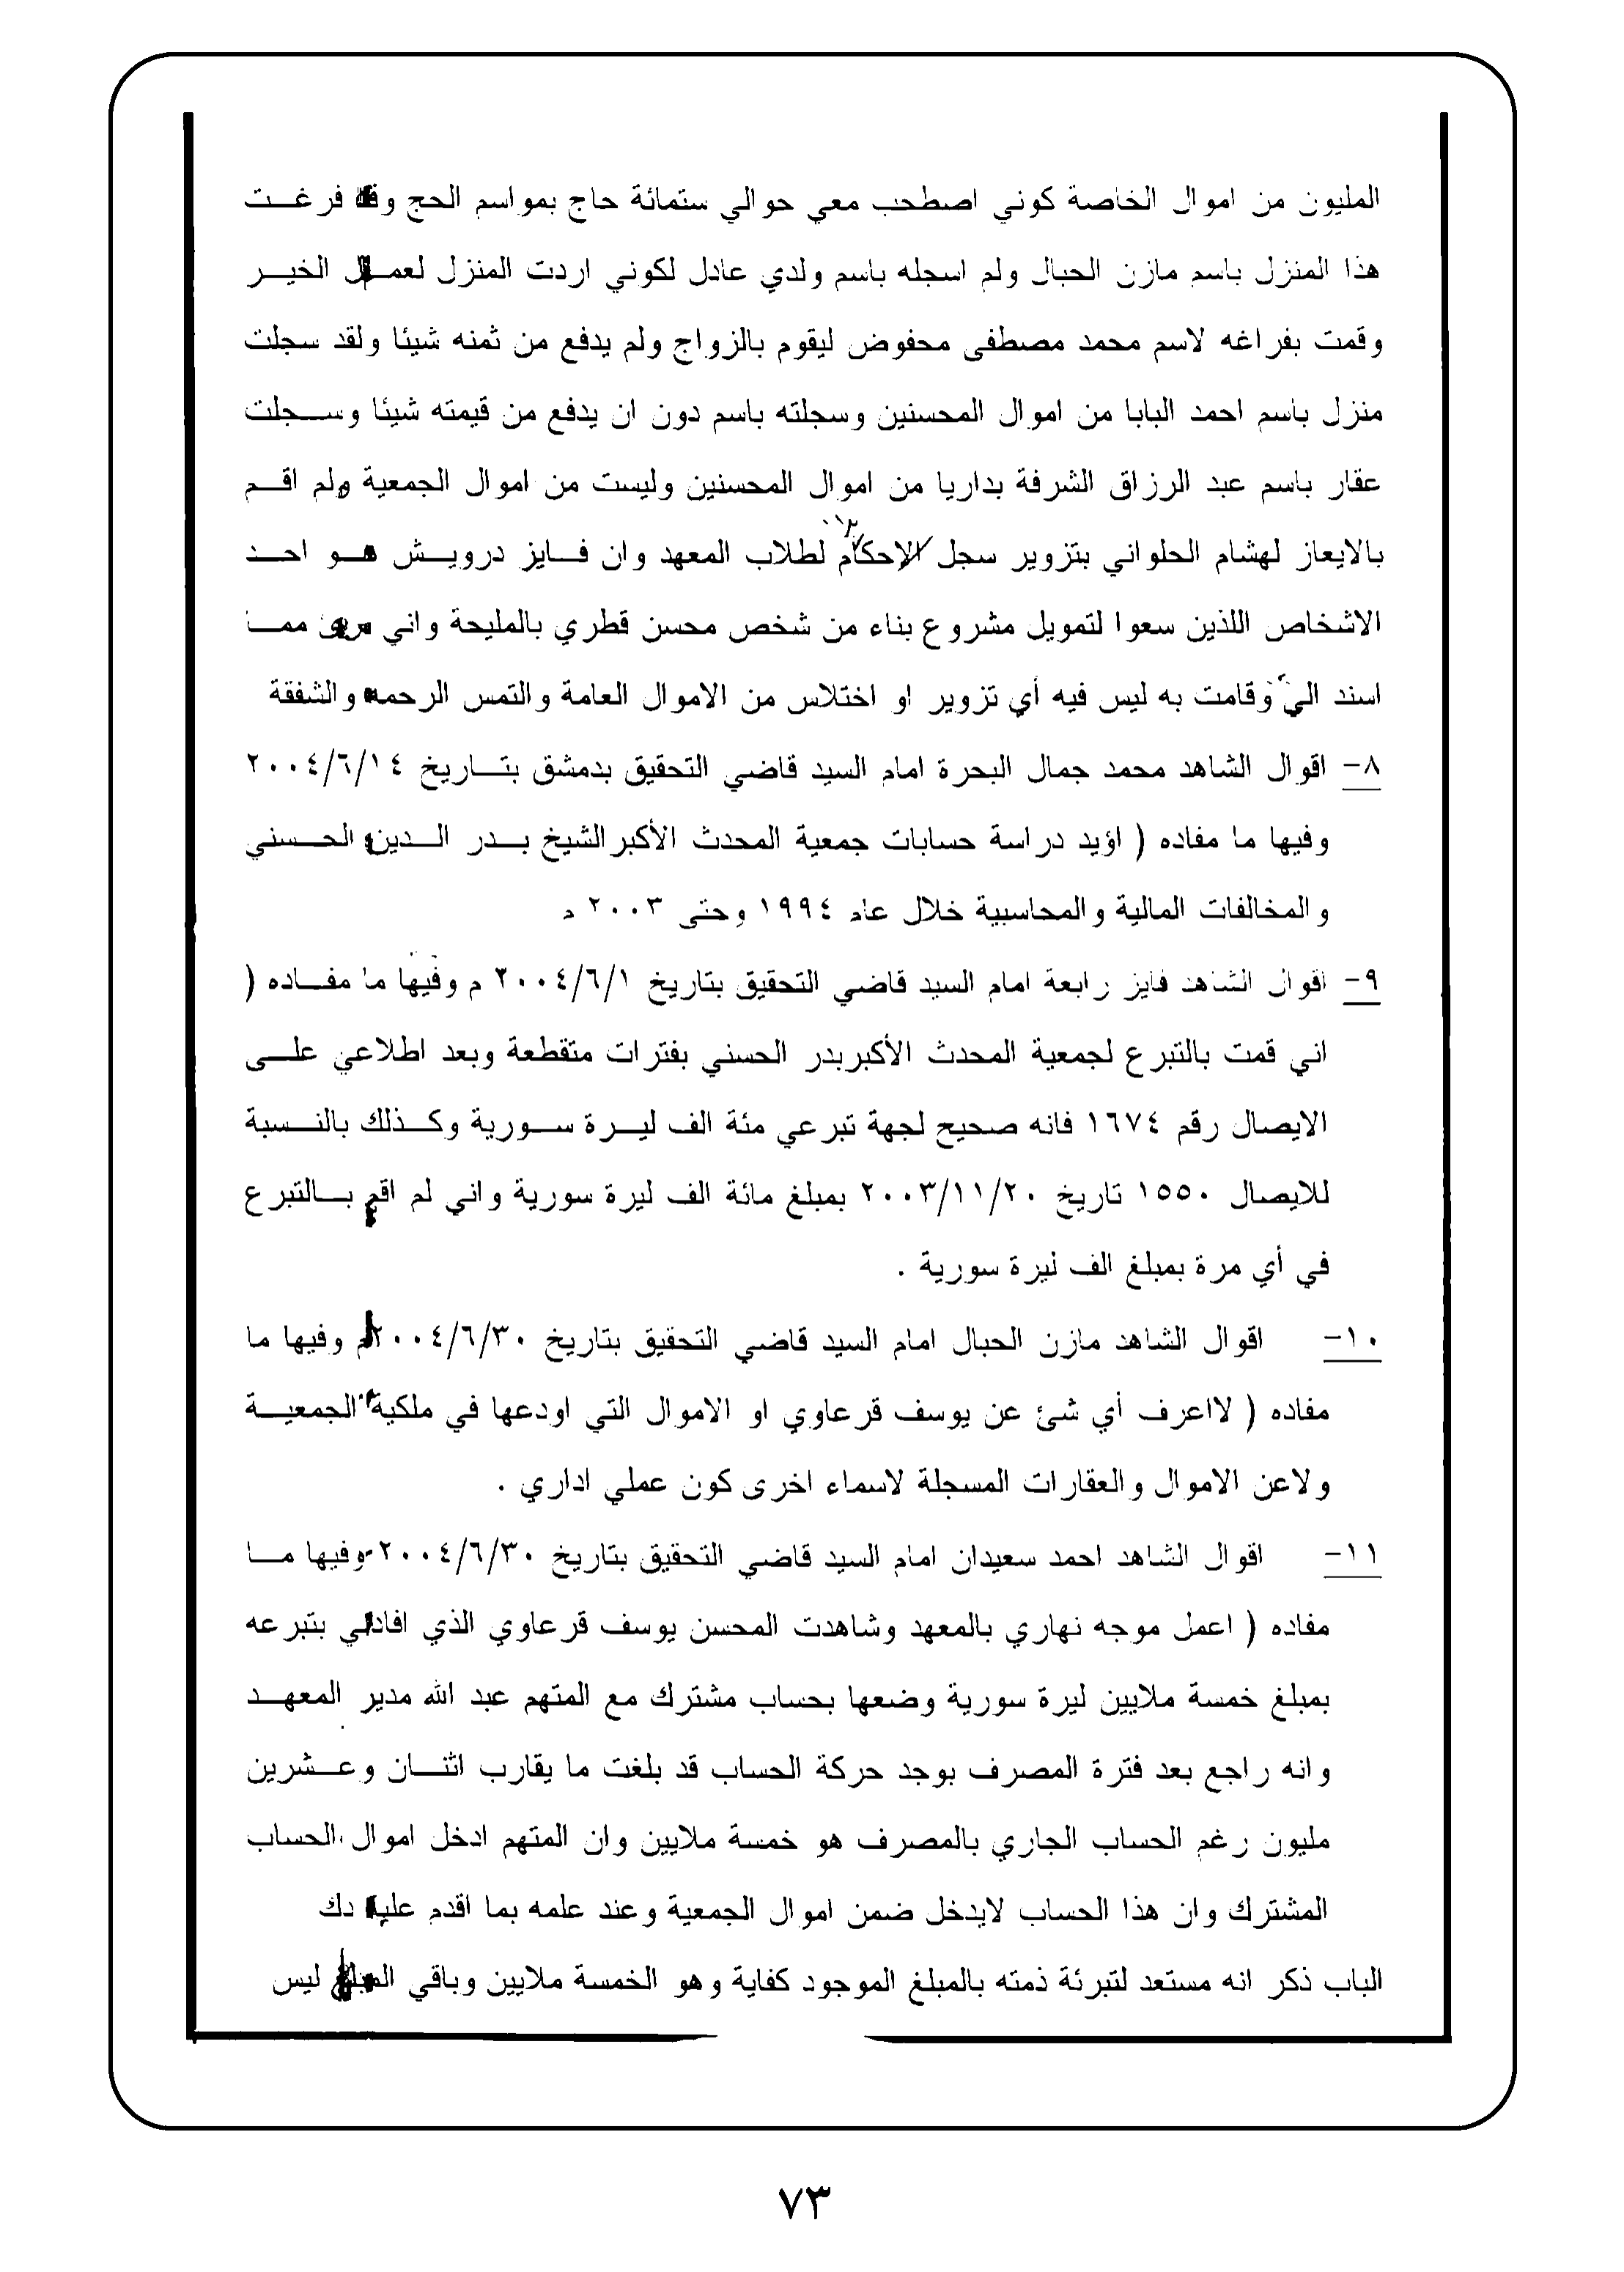 المليون من اموال الخاصة كوني اصطحب معي حوالي ستمائة حاج بمواسم الحج وقد فرغت
هذا المنزل باسم مازن الحبال ولم اسجله باسم ولدي عادل لكوني اردت المنزل لعمل الخير
وقمت بفراغه لاسم محمد مصطفى محفوض ليقوم بالزواج ولم يدفع من ثمنه شيئا ولقد سجلت
منزل باسم احمد البابا من اموال المحسنين وسجلته باسم دون ان يدفع من قيمته شيئا وسجلت
عقار باسم عبد الرزاق الشرفة بداريا من اموال المحسنين وليست من اموال الجمعية ولم اقم
بالايعاز لهشام الحلواني بتزوير سجل الإحكام لطلاب المعهد وان فايز درويش هو احد
الاشخاص اللذين سعوا لتمويل مشروع بناء من شخص محسن قطري بالمليحة واني مما
اسند الي وقامت به ليس فيه أي تزوير او اختلاس من الاموال العامة والتمس الرحمه والشفقة
٨- اقوال الشاهد محمد جمال البحرة امام السيد قاضي التحقيق بدمشق بتاريخ ٢٠٠٤/٦/١٤
وفيها ما مفاده ( اؤيد دراسة حسابات جمعية المحدث الأكبر الشيخ بدر الدين الحسني
والمخالفات المالية والمحاسبية خلال عام ١٩٩٤ وحتى ٢٠٠٣ م
٩- اقوال الشاهد فايز رابعة امام السيد قاضي التحقيق بتاريخ ٢٠٠٤/٦/١ م وفيها ما مفاده (
اني قمت بالتبرع لجمعية المحدث الأكبر بدر الحسني بفترات متقطعة وبعد اطلاعي على
الايصال رقم ١٦٧٤ فانه صحيح لجهة تبرعي مئة الف ليرة سورية وكذلك بالنسبة
للايصال ١٥٥٠ تاريخ ٢٠٠٣/١١/٢٠ بمبلغ مائة الف ليرة سورية واني لم اقم بالتبرع
في أي مرة بمبلغ الف ليرة سورية .
١٠- اقوال الشاهد مازن الحبال امام السيد قاضي التحقيق بتاريخ ٢٠٠٤/٦/٣٠ م وفيها ما
مفاده ( لااعرف أي شئ عن يوسف قرعاوي او الاموال التي اودعها في ملكية الجمعية
ولاعن الاموال والعقارات المسجلة لاسماء اخرى كون عملي اداري .
١١- اقوال الشاهد احمد سعيدان امام السيد قاضي التحقيق بتاريخ ٢٠٠٤/٦/٣٠ وفيها ما
مفاده ( اعمل موجه نهاري بالمعهد وشاهدت المحسن يوسف قرعاوي الذي افادني بتبرعه
بمبلغ خمسة ملايين ليرة سورية وضعها بحساب مشترك مع المتهم عبد الله مدير المعهد
وانه راجع بعد فترة المصرف بوجد حركة الحساب قد بلغت ما يقارب اثنان وعشرين
مليون رغم الحساب الجاري بالمصرف هو خمسة ملايين وان المتهم ادخل اموال الحساب
المشترك وان هذا الحساب لايدخل ضمن اموال الجمعية وعند علمه بما اقدم عليه دك
الباب ذكر انه مستعد لتبرئة ذمته بالمبلغ الموجود كفاية وهو الخمسة ملايين وباقي المبلغ ليس
٧٣